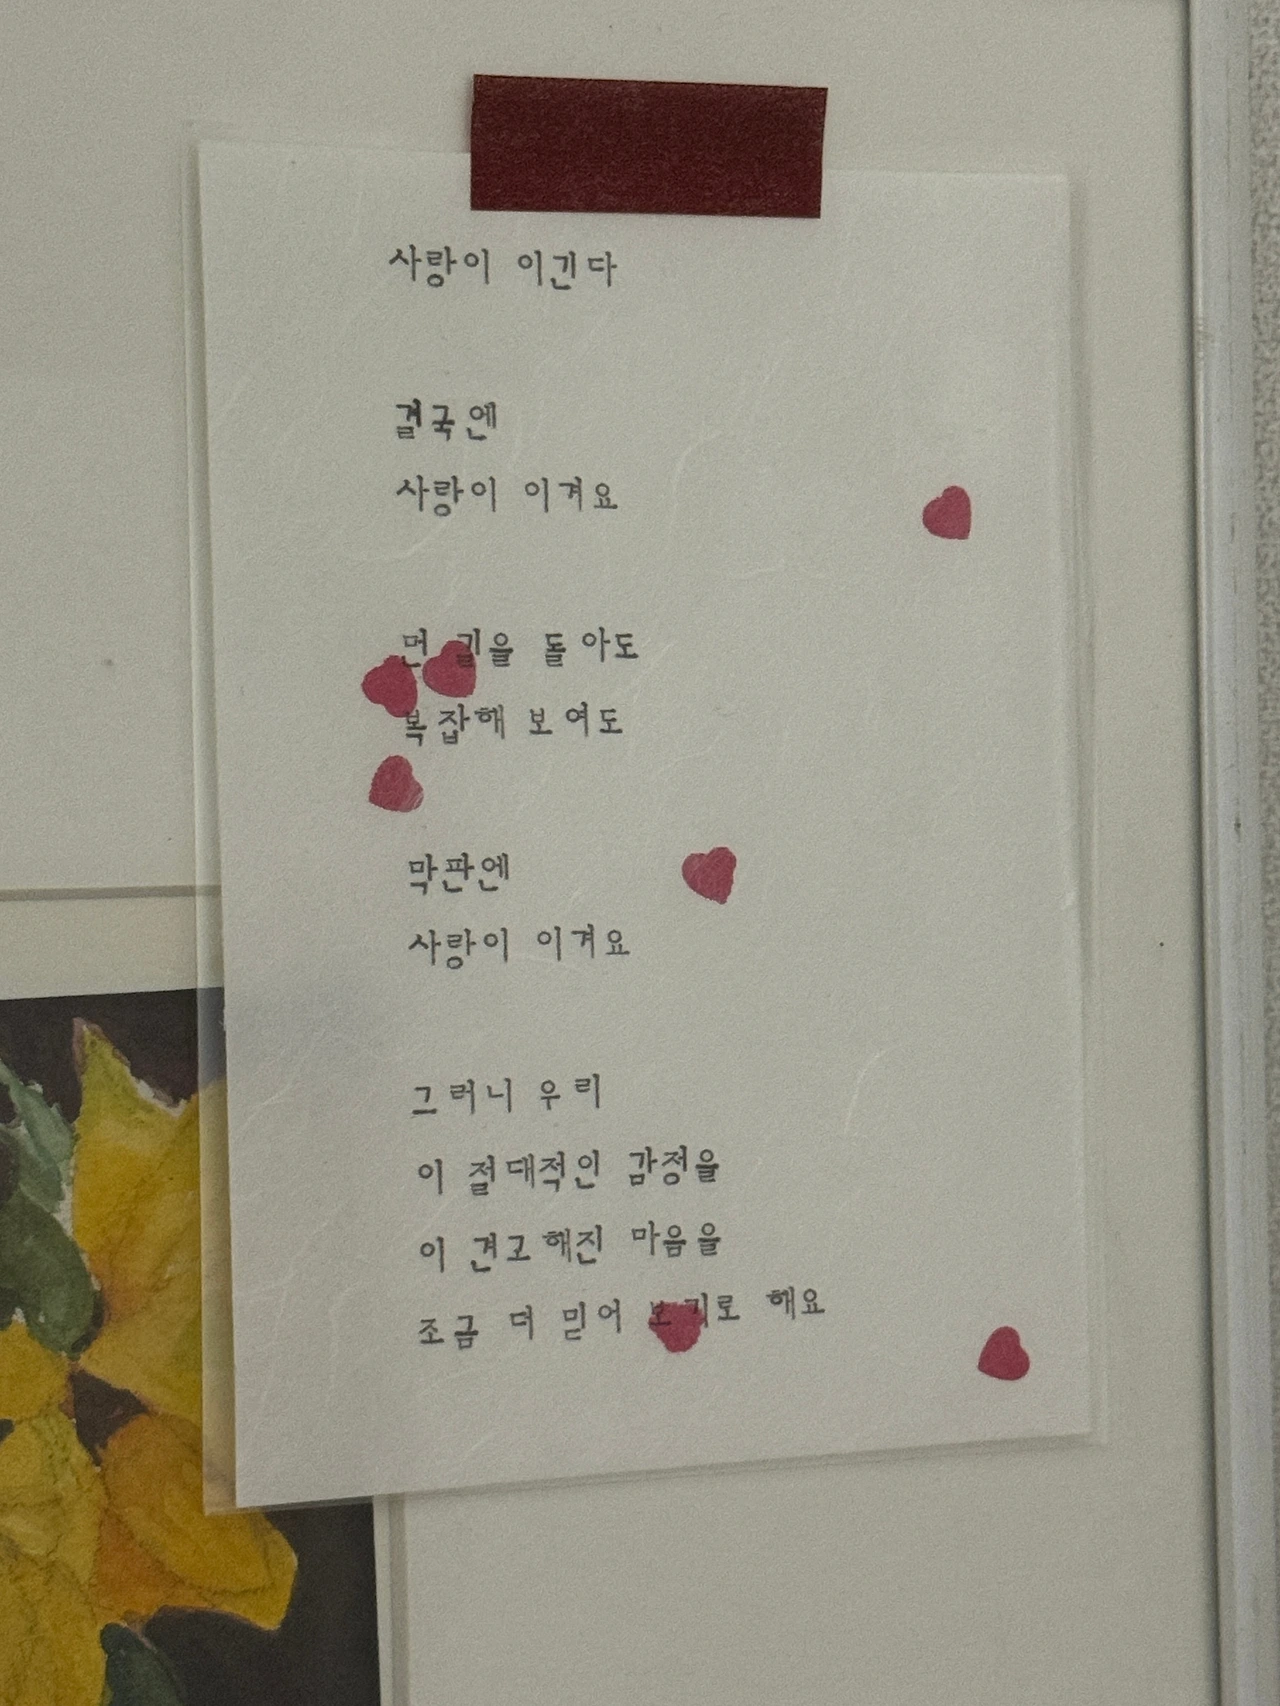 사랑이 이긴다
결국엔
사랑이 이겨요
먼 길을 돌아도
복잡해 보여도
막판엔
사랑이 이겨요
그러니 우리
이 절대적인 감정을
이 견고해진 마음을
조금 더 믿어 보기로 해요